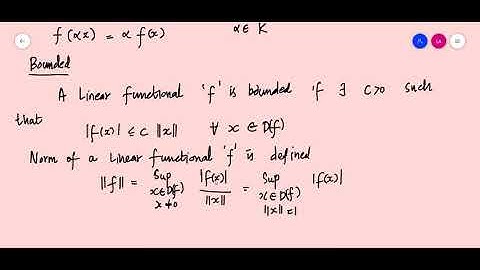 f(αx) = α f(x) α ∈ K
Bounded
A Linear functional 'f' is bounded if ∃ c>0 such
that
|f(x)| ≤ c ||x|| ∀ x ∈ D(f)
Norm of a Linear functional 'f' is defined
||f|| = Sup x∈D(f) x≠0 |f(x)| / ||x|| = Sup x∈D(f) ||x||=1 |f(x)|